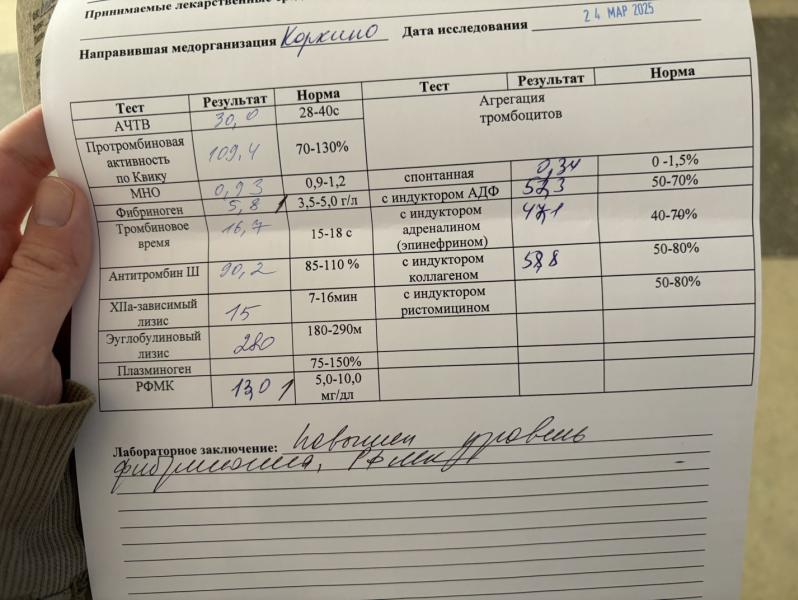 Принимаемые лекарственные
Направившая медорганизация Коркино Дата исследования 24 МАР 2025
Тест Результат Норма Тест Результат Норма
АЧТВ 30,0 28-40с Агрегация тромбоцитов
Протромбиновая активность по Квику 109,4 70-130%
спонтанная 0,34 0 -1,5%
МНО 0,93 0,9-1,2 с индуктором АДФ 52,3 50-70%
Фибриноген 5,8 ↑ 3,5-5,0 г/л с индуктором адреналином (эпинефрином) 47,1 40-70%
Тромбиновое время 16,7 15-18 с
Антитромбин Ш 90,2 85-110 % с индуктором коллагеном 58,8 50-80%
XIIа-зависимый лизис 15 7-16мин с индуктором ристомицином 50-80%
Эуглобулиновый лизис 280 180-290м
Плазминоген 75-150%
РФМК 13,0 ↑ 5,0-10,0 мг/дл
Лабораторное заключение: повышен уровень
фибриногена, РФМК